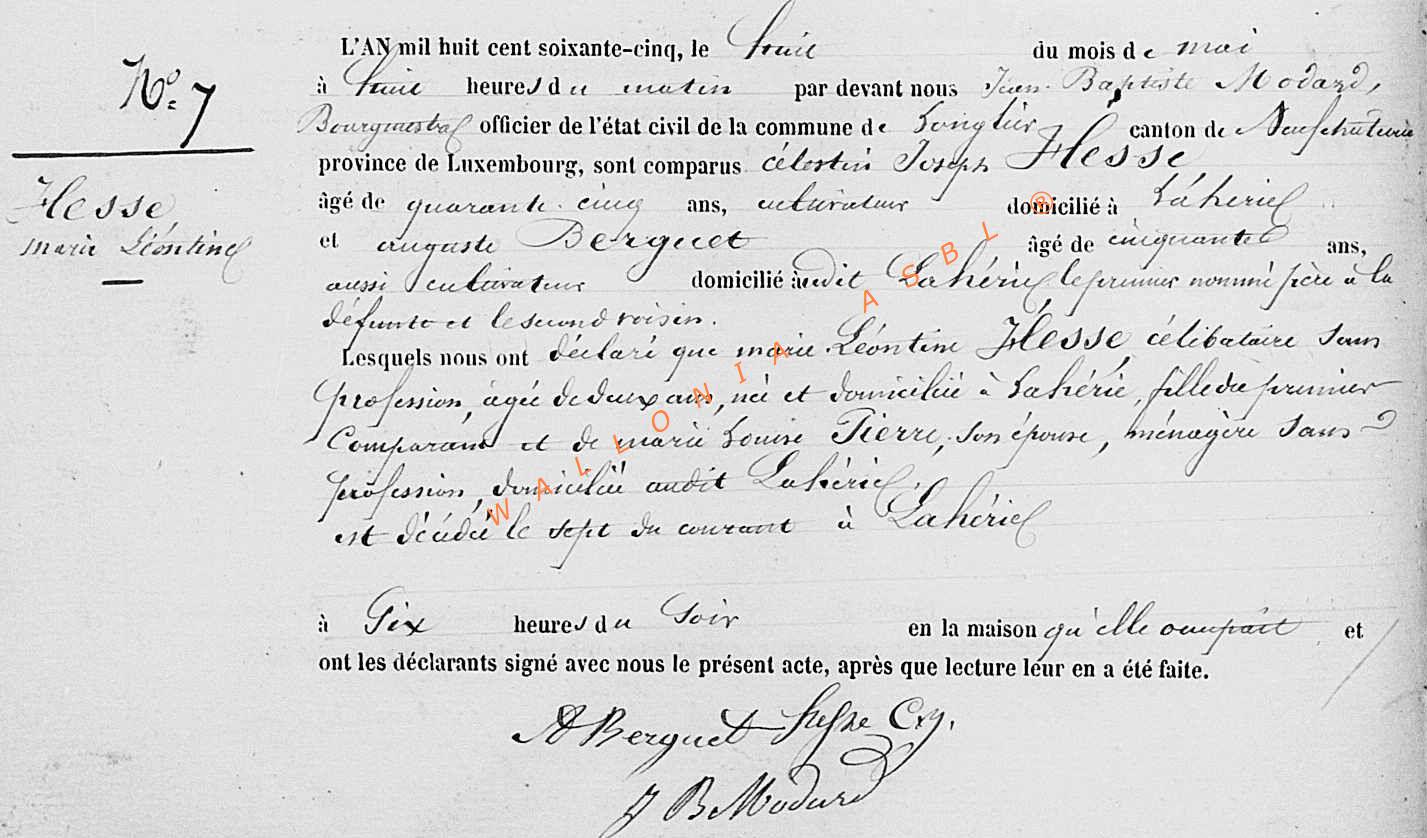 N° 7
Hesse
Marie Léontine
L'AN mil huit cent soixante-cinq, le huit du mois de mai
à huit heures du matin par devant nous Jean Baptiste Modard,
Bourgmestre officier de l'état civil de la commune de Longlier canton de Neufchateau
province de Luxembourg, sont comparus célestin Joseph Hesse
âgé de quarante cinq ans, cultivateur domicilié à Lahérie
et auguste Berguet âgé de cinquante ans,
aussi cultivateur domicilié audit Lahérie le premier nommé père à la
défunte et le second voisin.
Lesquels nous ont déclaré que marie Léontine Hesse célibataire sans
profession, agée de deux ans, née et domiciliée à Lahérie, fille du premier
Comparant et de marie Louise Pierre, son épouse, ménagère sans
profession, domiciliée audit Lahérie,
est décédée le sept du courant à Lahérie
à Six heures du Soir en la maison qu'elle occupait et
ont les déclarants signé avec nous le présent acte, après que lecture leur en a été faite.
A Berguet Hesse
J B Modard
WALLONIA ASBL ®